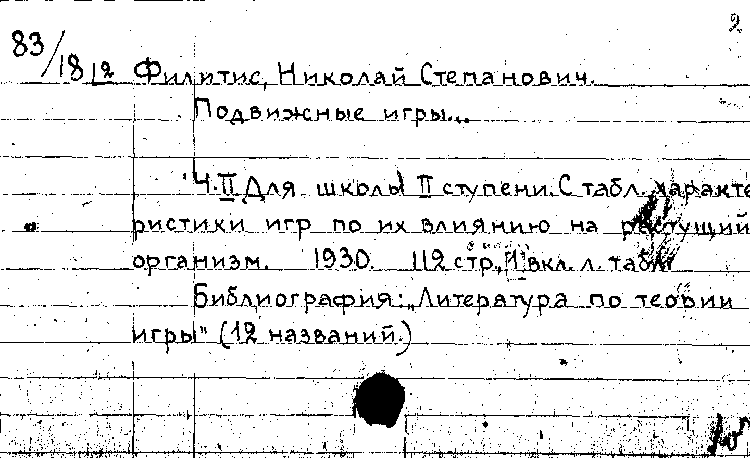 2
83/1812 Филитис, Николай Степанович.
Подвижные игры...
Ч. II Для школы II ступени. С табл. характе
ристики игр по их влиянию на растущий
организм. 1930. 112 стр., 1 вкл. л. табл
Библиография: „Литература по теории
игры" (12 названий.)